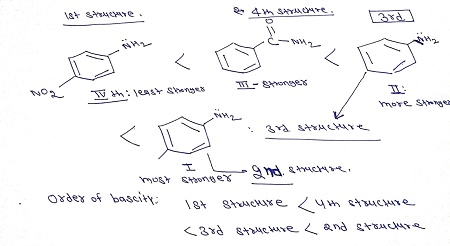 1st structure. & 4th structure. 3rd
N̈H2 O N̈H2
C-NH2
NO2 IVth: least stronger III-stronger II:
more stronger
< N̈H2 : 3rd structure
I
most stronger 2nd structure.
Order of bascity: 1st structure < 4th structure
< 3rd structure < 2nd structure